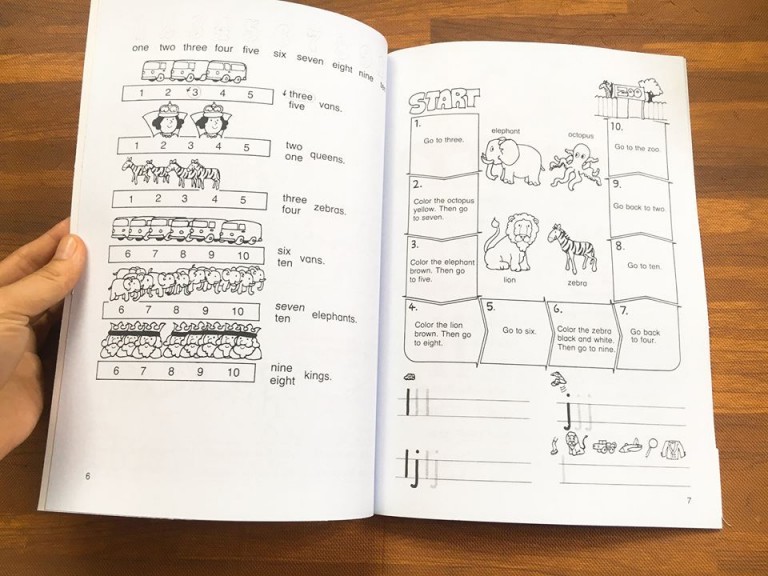 one two three four five six seven eight nine ten
1 2 3 4 5
three vans.
five
1 2 3 4 5
two queens.
one
1 2 3 4 5
three zebras.
four
6 7 8 9 10
six vans.
ten
6 7 8 9 10
seven elephants.
ten
6 7 8 9 10
nine kings.
eight
6
START
ZOO
1.
Go to three.
2.
Color the octopus
yellow. Then go
to seven.
3.
Color the elephant
brown. Then go
to five.
4.
Color the lion
brown. Then go
to eight.
5.
Go to six.
6.
Color the zebra
black and white.
Then go to nine.
7.
Go back
to four.
8.
Go to ten.
9.
Go back to two.
10.
Go to the zoo.
elephant
octopus
lion
zebra
l l l
j j j
lj lj
l
7